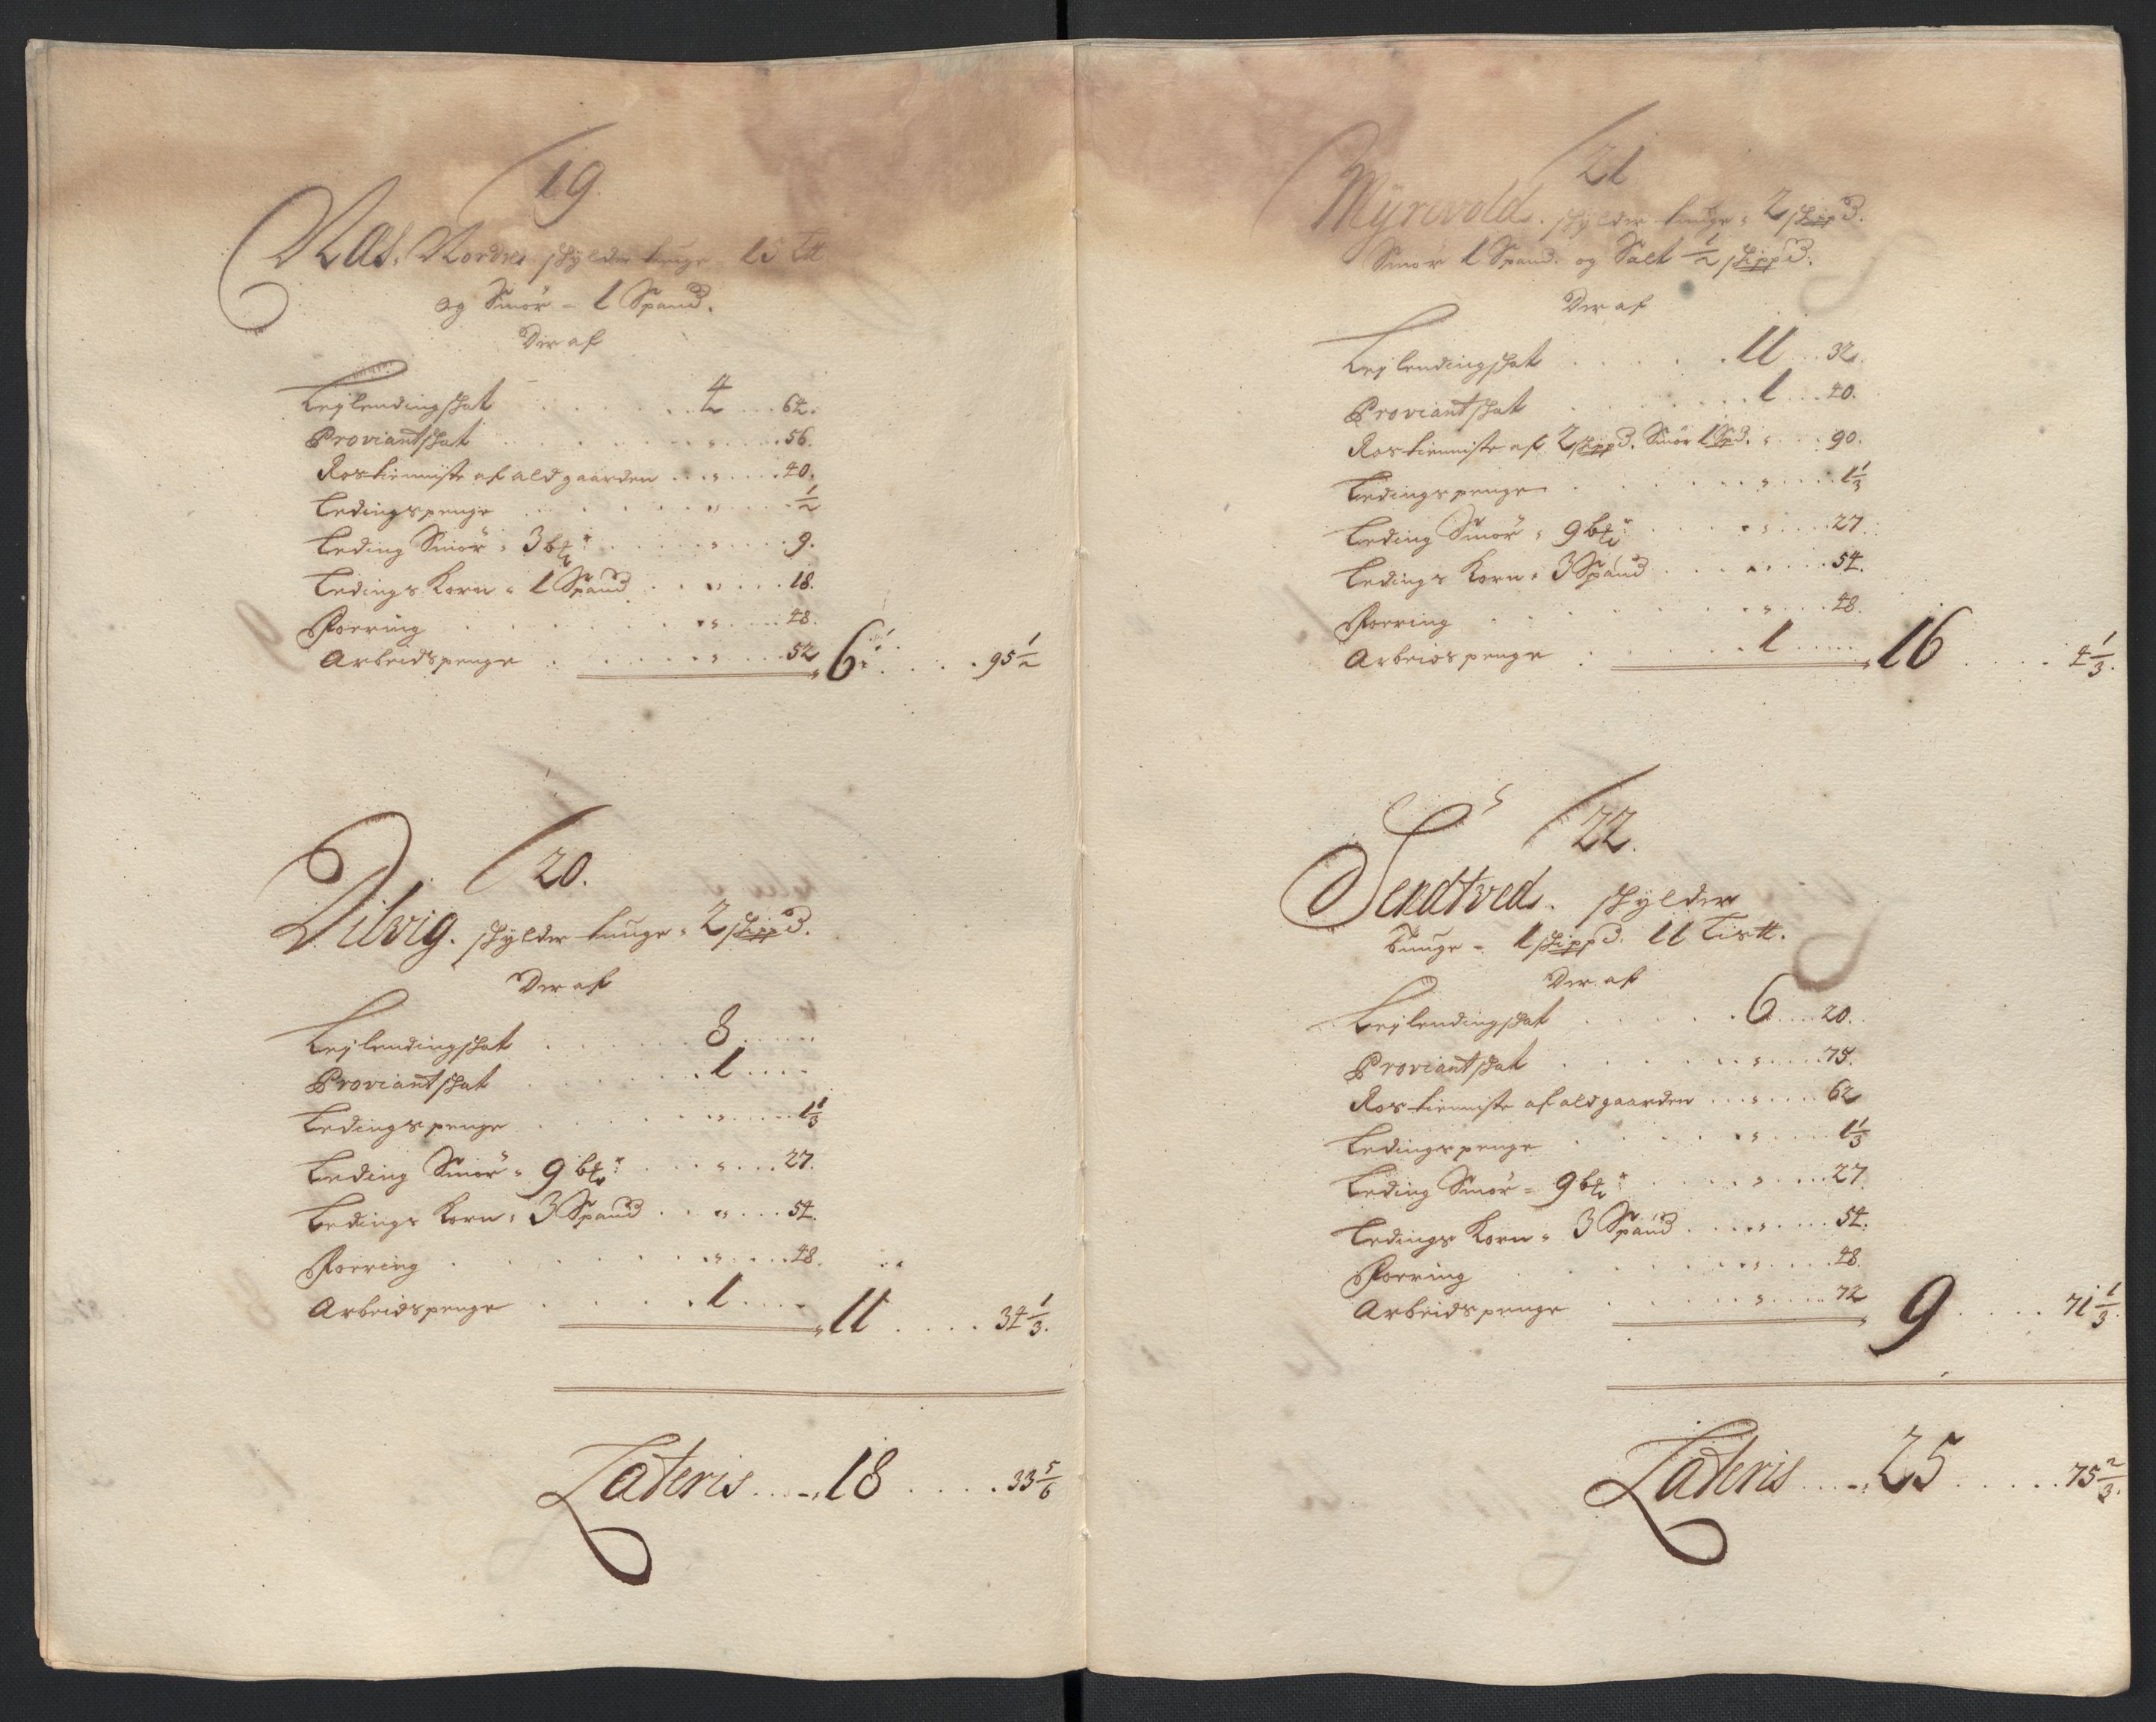 19.
Næs. Nordre skylder tunge 15 Lt
og Smör - 1 Spand.
Der af
Leylendingskat 4 64.
Proviantskat " 56.
Rostienniste af ald gaarden " 40.
Ledingspenge " 1/2
Leding Smör = 3 bfr " 9.
Ledings Korn = 1 Spand " 18.
Foering " 48.
Arbeidspenge " 52 6 95 1/2
20.
Dilvig. skylder tunge = 2 skippd.
Der af
Leylendingskat 8
Proviantskat 1
Ledingspenge " 1 1/3
Leding Smör = 9 bfr " 27.
Ledings Korn = 3 Spand " 54.
Foering " 48.
Arbeidspenge 1 11 34 1/3.
Lateris 18 33 5/6
21
Myrevold. skylder tunge = 2 skippd.
Smör 1 Spand. og Salt 1/2 skippd.
Der af
Leylendingskat 11 32.
Proviantskat 1 40.
Rostienniste af 2 skippd. Smör 1 Spd. " 90.
Ledingspenge " 1 1/3
Leding Smör = 9 bfr " 27.
Ledings Korn = 3 Spand " 54.
Foering " 48.
Arbeidspenge 1 16 4 1/3.
22.
Sendtved. skylder
tunge - 1 skippd. 11 Listt.
Der af
Leylendingskat 6 20.
Proviantskat " 75.
Rostienniste af ald gaarden " 62
Ledingspenge " 1 1/3
Leding Smör = 9 bfr " 27
Ledings Korn = 3 Spand " 54.
Foering " 48.
Arbeidspenge " 72 9 71 1/3.
Lateris 25 75 2/3.